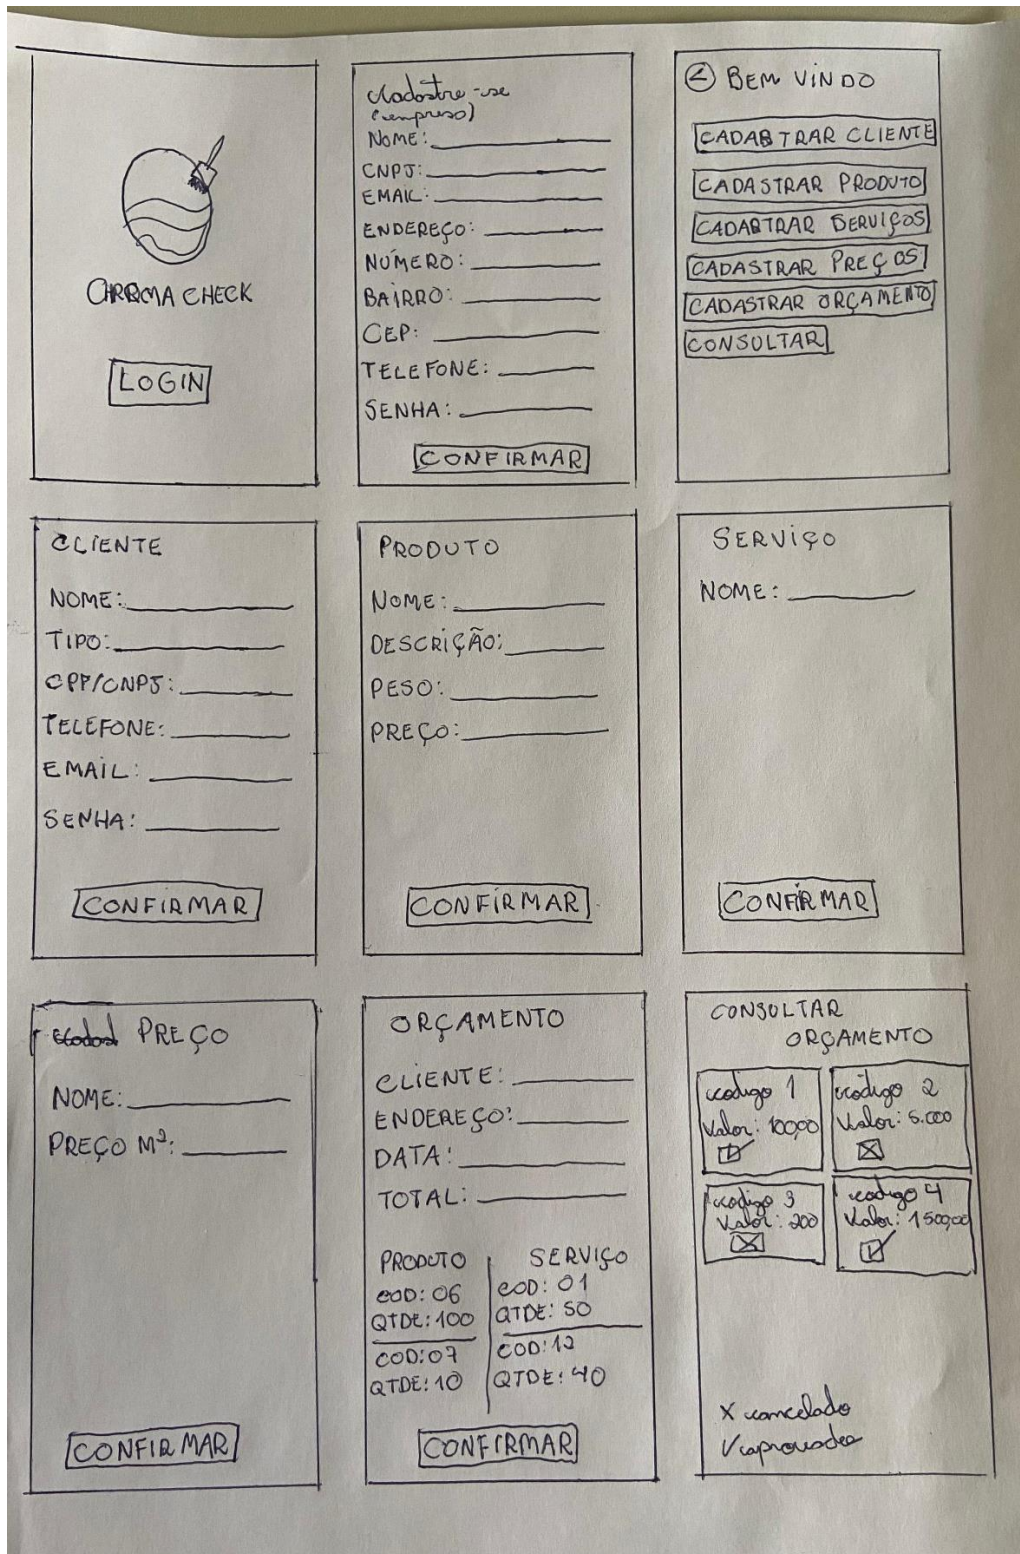 CHROMA CHECK
LOGIN
Cadastre-se
(empresa)
NOME:
CNPJ:
EMAIL:
ENDEREÇO:
NÚMERO:
BAIRRO:
CEP:
TELEFONE:
SENHA:
CONFIRMAR
BEM VINDO
CADASTRAR CLIENTE
CADASTRAR PRODUTO
CADASTRAR SERVIÇOS
CADASTRAR PREÇOS
CADASTRAR ORÇAMENTO
CONSULTAR
CLIENTE
NOME:
TIPO:
CPF/CNPJ:
TELEFONE:
EMAIL:
SENHA:
CONFIRMAR
PRODUTO
NOME:
DESCRIÇÃO:
PESO:
PREÇO:
CONFIRMAR
SERVIÇO
NOME:
CONFIRMAR
PREÇO
NOME:
PREÇO M²:
CONFIRMAR
ORÇAMENTO
CLIENTE:
ENDEREÇO:
DATA:
TOTAL:
PRODUTO
COD: 06
QTDE: 100
COD: 07
QTDE: 10
SERVIÇO
COD: 01
QTDE: 50
COD: 12
QTDE: 40
CONFIRMAR
CONSULTAR
ORÇAMENTO
codigo 1
Valor: 100,00
codigo 2
Valor: 5.000
codigo 3
Valor: 200
codigo 4
Valor: 1500,00
X cancelado
V aprovado